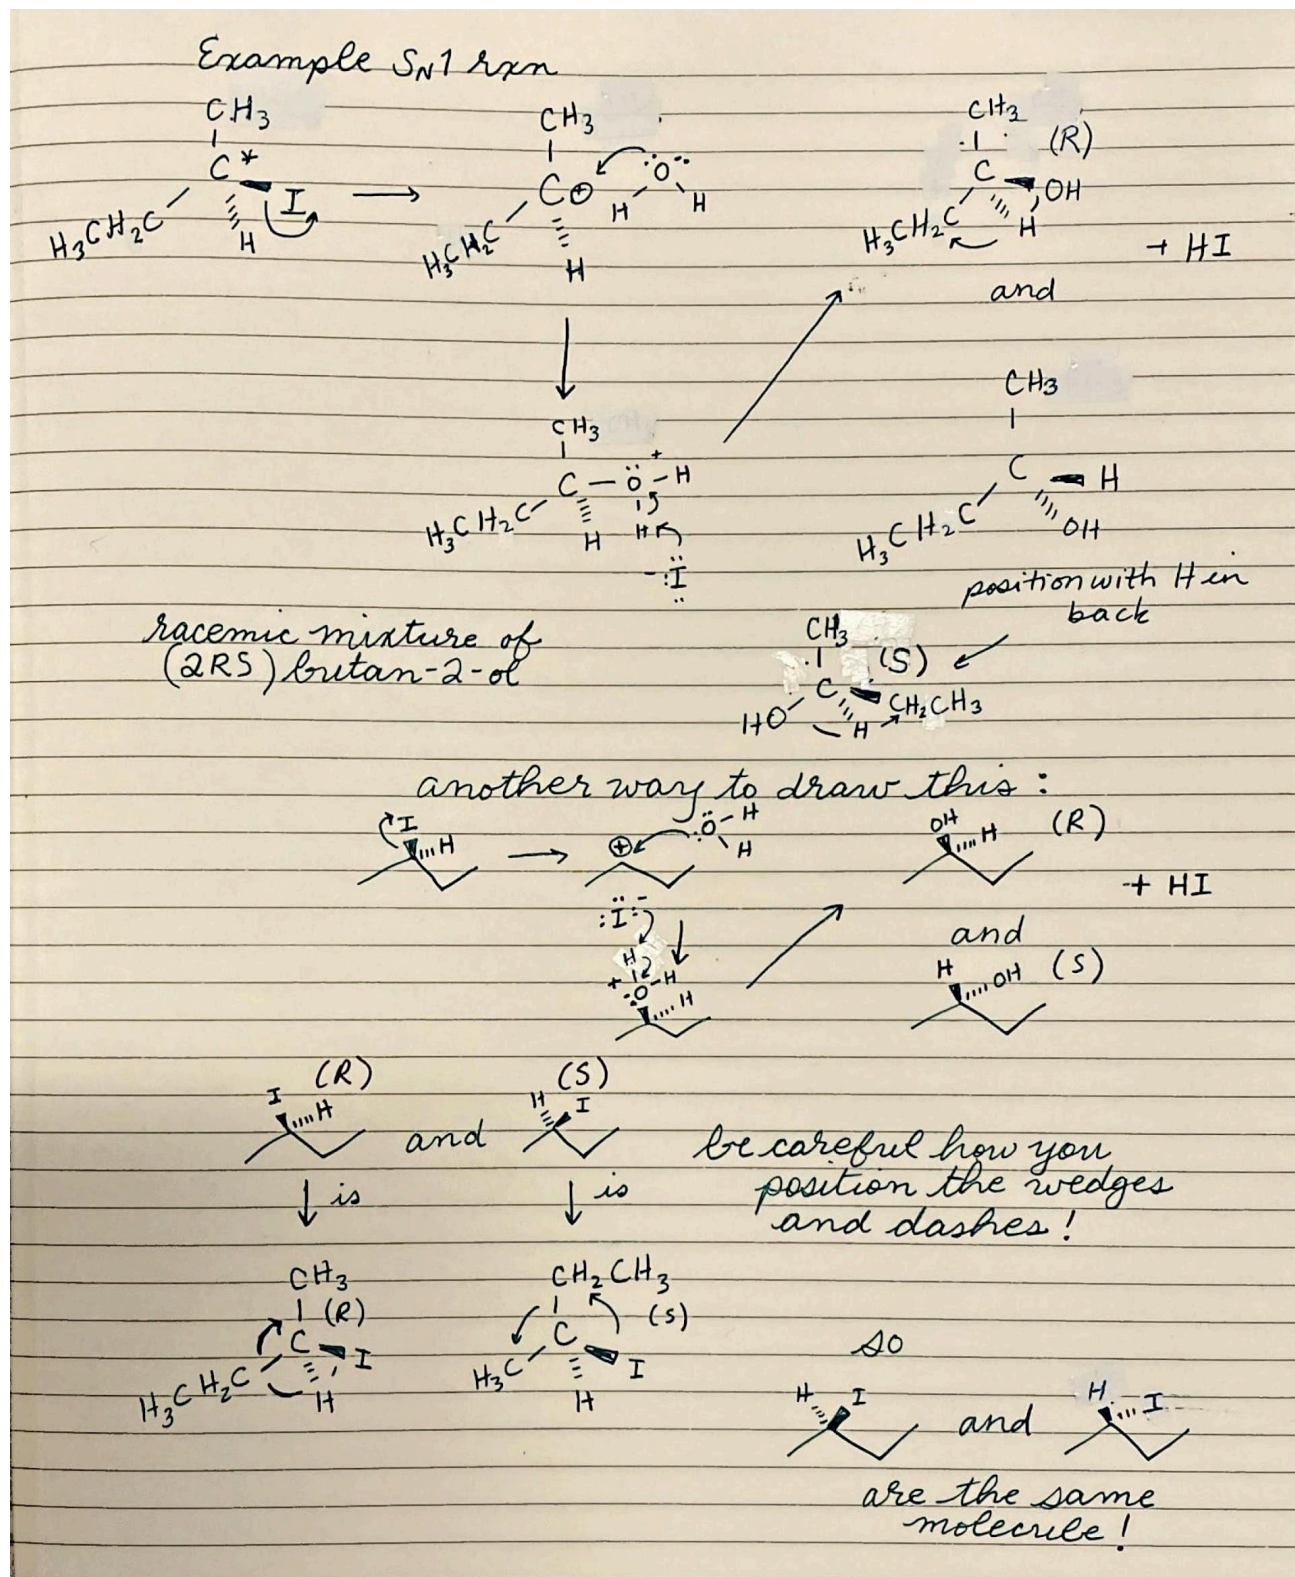 Example SN1 rxn
CH3
C*
I
H3CH2C
H
CH3
C⊕
:Ö:
H
H
H3CH2C
H
CH3
(R)
C
OH
H3CH2C
H
+ HI
and
CH3
C
H
H3CH2C
OH
CH3
C — Ö+ — H
H3CH2C
H
H
-:Ï:
position with H in
back
racemic mixture of
(2RS) butan-2-ol
CH3
(S)
C
HO
H
CH2CH3
another way to draw this:
I
H
⊕
:Ö — H
H
OH
H
(R)
+ HI
:Ï:-
H
+
:O — H
H
and
H
OH
(S)
(R)
I
H
and
(S)
H
I
be careful how you
position the wedges
and dashes!
is
is
CH3
(R)
C
I
H3CH2C
H
CH2CH3
(S)
C
I
H3C
H
so
H
I
and
H
I
are the same
molecule!